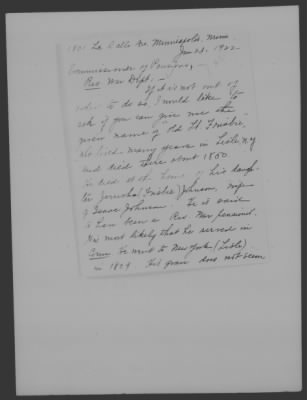 1801 La Salle Ave. Minneapolis, Minn.
Jan 28. 1922
Commissioner of Pensions,
Rev. War Dept. —
If it is not out of
order to do so, I would like to
ask if you can give me the
given name of Old Lt. Frisbie,
who lived many years in Lisle, N.Y.
and died there about 1850.
He died at the home of his daugh-
ter Jerusha (Frisbie) Johnson, wife
of Isaac Johnson. He is said
to have been a Rev. War pensioner.
It is most likely that he served in
Conn. He went to New York (Lisle)
in 1829. His grave does not seem